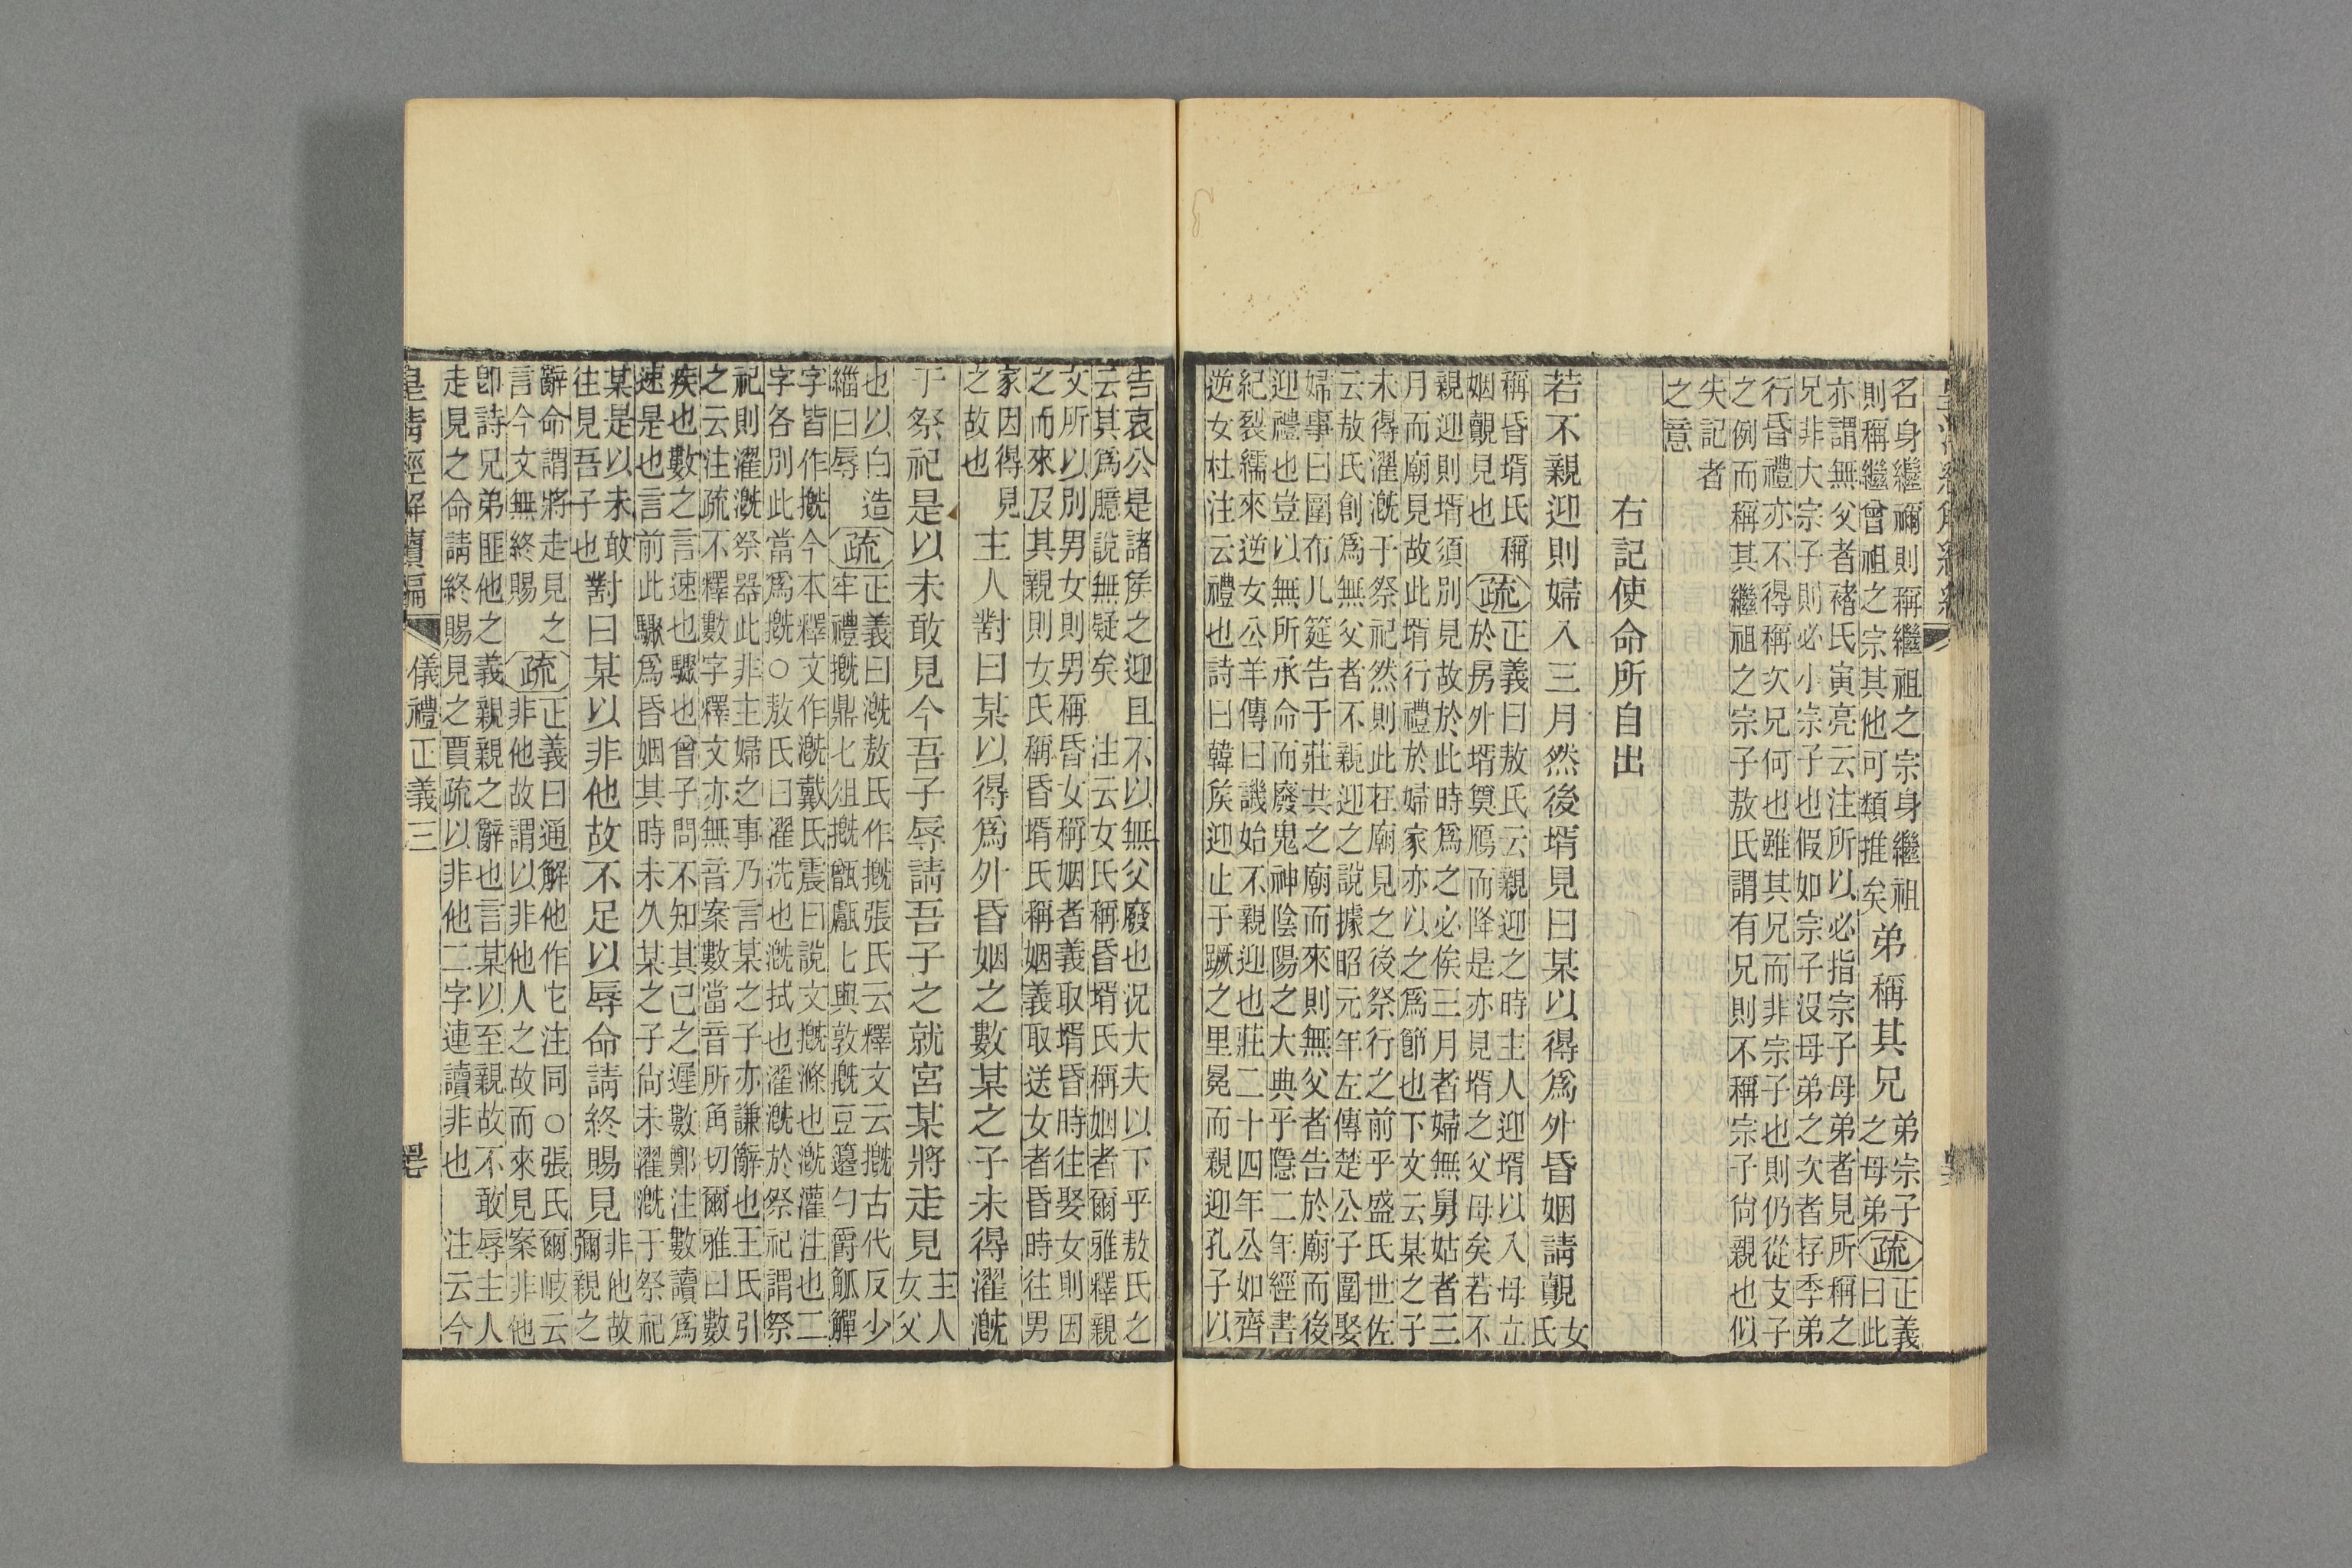 名身繼禰則稱繼祖之宗身繼祖
則稱繼曾祖之宗其他可類推矣
弟稱其兄
弟宗子
之母弟
疏
正義
曰此
亦謂無父者褚氏寅亮云注所以必指宗子母弟者見所稱之
兄非大宗子則必小宗子也假如宗子沒母弟之次者存季弟
行昏禮亦不得稱次兄何也雖其兄而非宗子也則仍從支子
之例而稱其繼祖之宗子敖氏謂有兄則不稱宗子尙親也似
失記者
之意
右記使命所自出
若不親迎則婦入三月然後壻見曰某以得爲外昏姻請覿
女
氏
稱昏壻氏稱
姻覿見也
疏
正義曰敖氏云親迎之時主人迎壻以入母立
於房外壻奠鴈而降是亦見壻之父母矣若不
親迎則壻須別見故於此時爲之必俟三月者婦無舅姑者三
月而廟見故此壻行禮於婦家亦以之爲節也下文云某之子
未得濯漑于祭祀然則此在廟見之後祭行之前乎盛氏世佐
云敖氏創爲無父者不親迎之說據昭元年左傳楚公子圍娶
婦事曰圍布几筵告于莊共之廟而來則無父者告於廟而後
迎禮也豈以無所承命而廢鬼神陰陽之大典乎隱二年經書
紀裂繻來逆女公羊傳曰譏始不親迎也莊二十四年公如齊
逆女杜注云禮也詩曰韓侯迎止于蹶之里冕而親迎孔子以
告哀公是諸侯之迎且不以無父廢也況大夫以下乎敖氏之
云其爲臆說無疑矣 注云女氏稱昏壻氏稱姻者爾雅釋親
文所以別男女則男稱昏女稱姻者義取壻昏時往娶女則因
之而來及其親則女氏稱昏壻氏稱姻義取送女者昏時往男
家因得見
之故也
主人對曰某以得爲外昏姻之數某之子未得濯漑
于祭祀是以未敢見今吾子辱請吾子之就宮某將走見
主人
女父
也以白造
緇曰辱
疏
正義曰漑敖氏作摡張氏云釋文云摡古代反少
牢禮摡鼎匕俎摡甑甗匕與敦摡豆籩勺爵觚觶
字皆作摡今本釋文作漑戴氏震曰說文摡滌也漑灌注也二
字各別此當爲摡○敖氏曰濯洗也漑拭也濯漑於祭祀謂祭
祀則濯漑祭器此非主婦之事乃言某之子亦謙辭也王氏引
之云注疏不釋數字釋文亦無音案數當音所角切爾雅曰數
疾也數之言速也驟也曾子問不知其已之遲數鄭注數讀爲
速是也言前此驟爲昏姻其時未久某之子尙未濯漑于祭祀
某是以未敢
往見吾子也
對曰某以非他故不足以辱命請終賜見
非他故
彌親之
辭命謂將走見之
言今文無終賜
疏
正義曰通解他作它注同○張氏爾岐云
非他故謂以非他人之故而來見案非他
卽詩兄弟匪他之義親親之辭也言某以至親故不敢辱主人
走見之命請終賜見之賈疏以非他二字連讀非也 注云今
皇淸經解續編
儀禮正義三